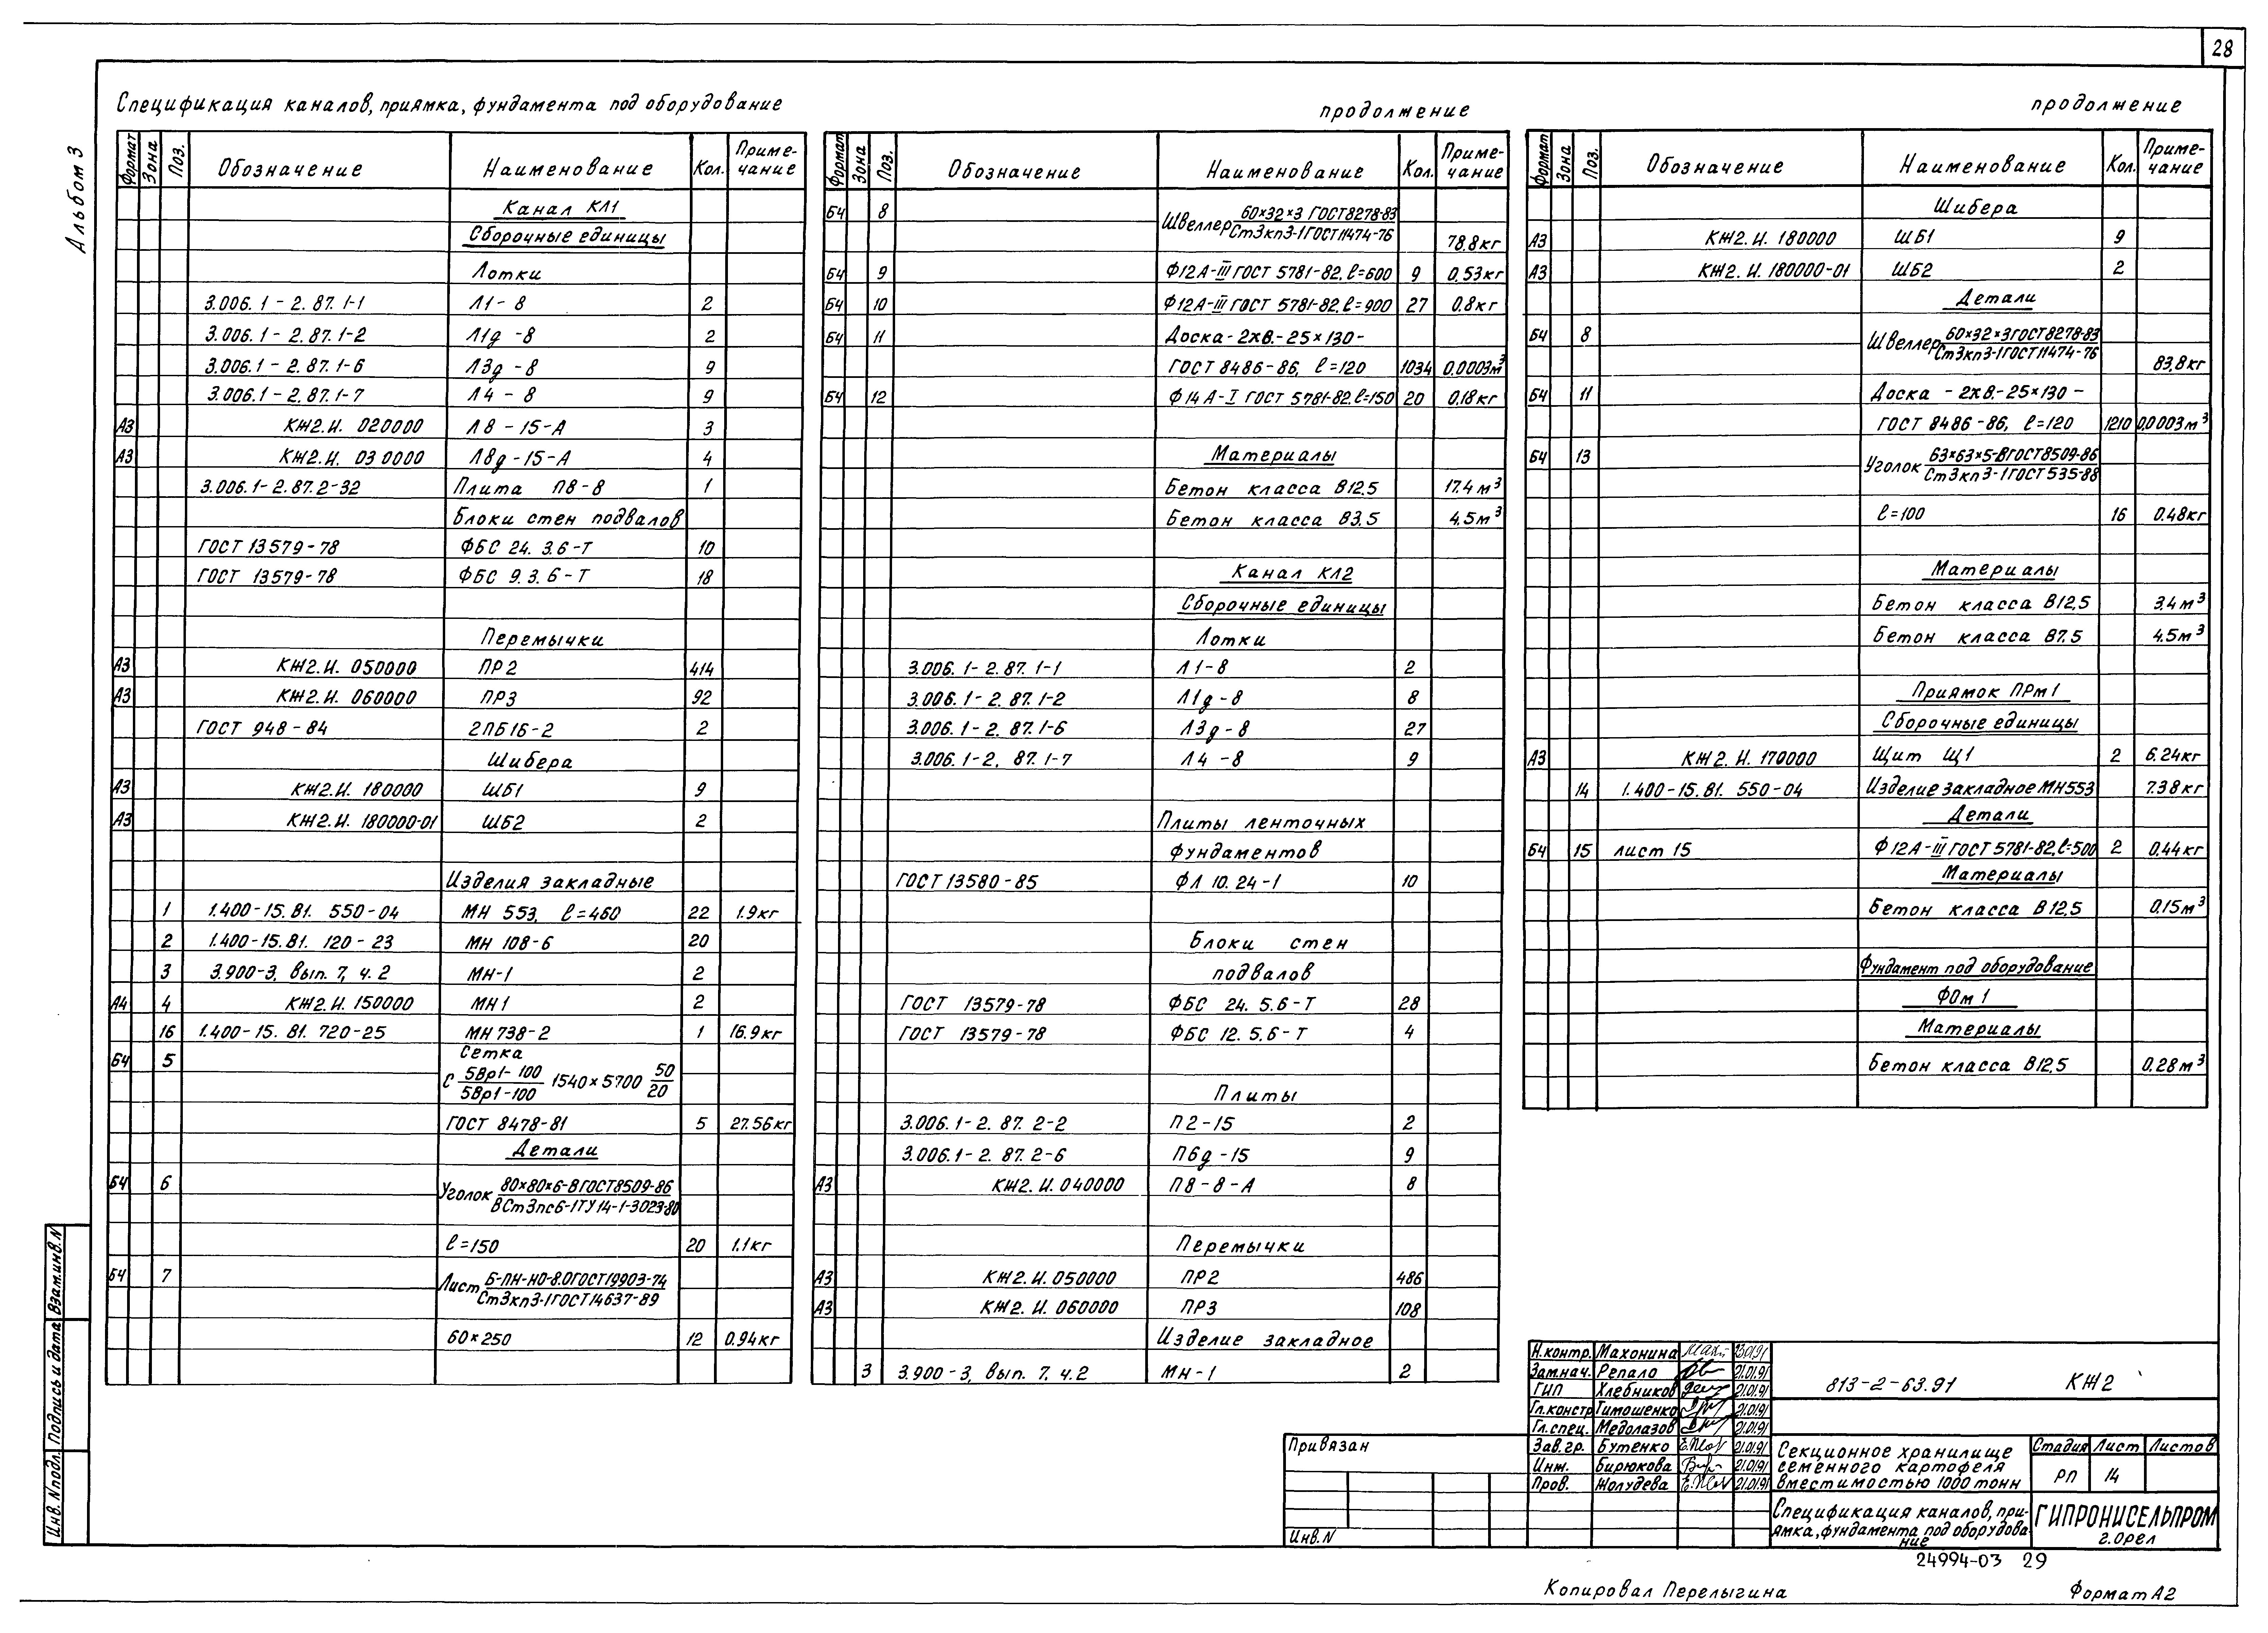 28
Альбом 3
Спецификация каналов, приямка, фундамента под оборудование
Формат Зона Поз. Обозначение Наименование Кол. Приме-чание
Канал КЛ1
Сборочные единицы
Лотки
3.006.1-2.87.1-1 Л1-8 2
3.006.1-2.87.1-2 Л1д-8 2
3.006.1-2.87.1-6 Л3д-8 9
3.006.1-2.87.1-7 Л4-8 9
А3 КЖ2.И. 020000 Л8-15-А 3
А3 КЖ2.И. 030000 Л8д-15-А 4
3.006.1-2.87.2-32 Плита П8-8 1
Блоки стен подвалов
ГОСТ 13579-78 ФБС 24.3.6-Т 10
ГОСТ 13579-78 ФБС 9.3.6-Т 18
Перемычки
А3 КЖ2.И. 050000 ПР2 414
А3 КЖ2.И. 060000 ПР3 92
ГОСТ 948-84 2ПБ16-2 2
Шибера
А3 КЖ2.И. 180000 ШБ1 9
А3 КЖ2.И. 180000-01 ШБ2 2
Изделия закладные
1 1.400-15.В1. 550-04 МН 553, ℓ=460 22 1.9кг
2 1.400-15.В1. 120-23 МН 108-6 20
3 3.900-3, вып. 7, ч. 2 МН-1 2
А4 4 КЖ2.И. 150000 МН1 2
16 1.400-15.В1. 720-25 МН 738-2 1 16.9кг
Б4 5 Сетка
С 5Вр1-100/5Вр1-100 1540×5700 50/20
ГОСТ 8478-81 5 27.56кг
Детали
Б4 6 Уголок 80×80×6-В ГОСТ8509-86/ВСт3пс6-1ТУ14-1-3023-80
ℓ=150 20 1.1кг
Б4 7 Лист Б-ПН-НО-8.0ГОСТ19903-74/Ст3кп3-1ГОСТ14637-89
60×250 12 0.94кг
продолжение
Формат Зона Поз. Обозначение Наименование Кол. Приме-чание
Б4 8 Швеллер 60×32×3 ГОСТ8278-83/Ст3кп3-1ГОСТ11474-76 78.8кг
Б4 9 Ф12А-III ГОСТ 5781-82, ℓ=600 9 0.53кг
Б4 10 Ф12А-III ГОСТ 5781-82, ℓ=900 27 0.8кг
Б4 11 Доска-2хв.-25×130-
ГОСТ 8486-86, ℓ=120 1034 0.0003м³
Б4 12 Ф14А-I ГОСТ 5781-82, ℓ=150 20 0.18кг
Материалы
Бетон класса В12.5 17.4м³
Бетон класса В3.5 4.5м³
Канал КЛ2
Сборочные единицы
Лотки
3.006.1-2.87.1-1 Л1-8 2
3.006.1-2.87.1-2 Л1д-8 8
3.006.1-2.87.1-6 Л3д-8 27
3.006.1-2.87.1-7 Л4-8 9
Плиты ленточных
фундаментов
ГОСТ 13580-85 ФЛ 10.24-1 10
Блоки стен
подвалов
ГОСТ 13579-78 ФБС 24.5.6-Т 28
ГОСТ 13579-78 ФБС 12.5.6-Т 4
Плиты
3.006.1-2.87.2-2 П2-15 2
3.006.1-2.87.2-6 П6д-15 9
А3 КЖ2.И. 040000 П8-8-А 8
Перемычки
А3 КЖ2.И. 050000 ПР2 486
А3 КЖ2.И. 060000 ПР3 108
Изделие закладное
3 3.900-3, вып. 7, ч.2 МН-1 2
продолжение
Формат Зона Поз. Обозначение Наименование Кол. Приме-чание
Шибера
А3 КЖ2.И. 180000 ШБ1 9
А3 КЖ2.И. 180000-01 ШБ2 2
Детали
Б4 8 Швеллер 60×32×3ГОСТ8278-83/Ст3кп3-1ГОСТ11474-76 83.8кг
Б4 11 Доска -2хв.-25×130-
ГОСТ 8486-86, ℓ=120 1210 0.0003м³
Б4 13 Уголок 63×63×5-ВГОСТ8509-86/Ст3кп3-1ГОСТ535-88
ℓ=100 16 0.48кг
Материалы
Бетон класса В12.5 3.4м³
Бетон класса В7.5 4.5м³
Приямок ПРм1
Сборочные единицы
А3 КЖ2.И. 170000 Щит Щ1 2 6.24кг
14 1.400-15.В1. 550-04 Изделие закладное МН553 7.38кг
Детали
Б4 15 лист 15 Ф12А-III ГОСТ 5781-82, ℓ=500 2 0.44кг
Материалы
Бетон класса В12.5 0.15м³
Фундамент под оборудование
ФОм 1
Материалы
Бетон класса В12.5 0.28м³
Взам.инв.N
Подпись и дата
Инв. Nподл.
Привязан
Инв. N
Н.контр. Махонина 23.01.91
Зам.нач. Репало 21.01.91
ГИП Хлебников 21.01.91
Гл.констр Тимошенко 21.01.91
Гл.спец. Медолазов 21.01.91
Зав.гр. Бутенко 21.01.91
Инж. Бирюкова 21.01.91
Пров. Жолудева 21.01.91
813-2-63.91 КЖ2
Секционное хранилище
семенного картофеля
вместимостью 1000 тонн
Стадия Лист Листов
РП 14
Спецификация каналов, при-
ямка, фундамента под оборудова
ние
ГИПРОНИСЕЛЬПРОМ
г.Орел
24994-03 29
Копировал Перелыгина
Формат А2